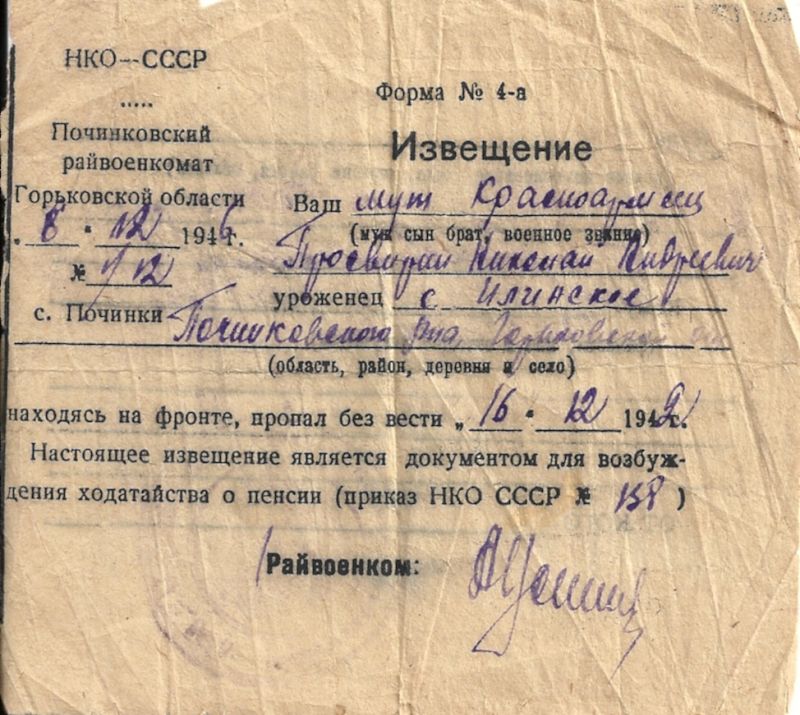 НКО—СССР
.....
Починковский
райвоенкомат
Горьковской области
„ 8 " 12 194 г.
№ 712
с. Починки
Форма № 4-а
Извещение
Ваш муж красноармеец
(муж сын брат, военное звание)
Просвирин Николай Андреевич
уроженец с Илинское
Починковского р-на, Горьковской
(область, район, деревня и село)
находясь на фронте, пропал без вести „ 16 " 12 1942г.
Настоящее извещение является документом для возбуж-
дения ходатайства о пенсии (приказ НКО СССР № 138 )
Райвоенком: